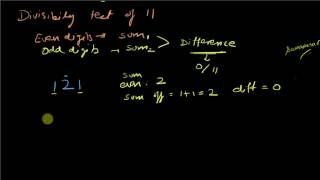 Divisibility test of 11
Even digits → sum₁
Odd digits → sum₂ > Difference
↓
0/11
121
sum even: 2
sum off = 1+1 = 2 diff = 0